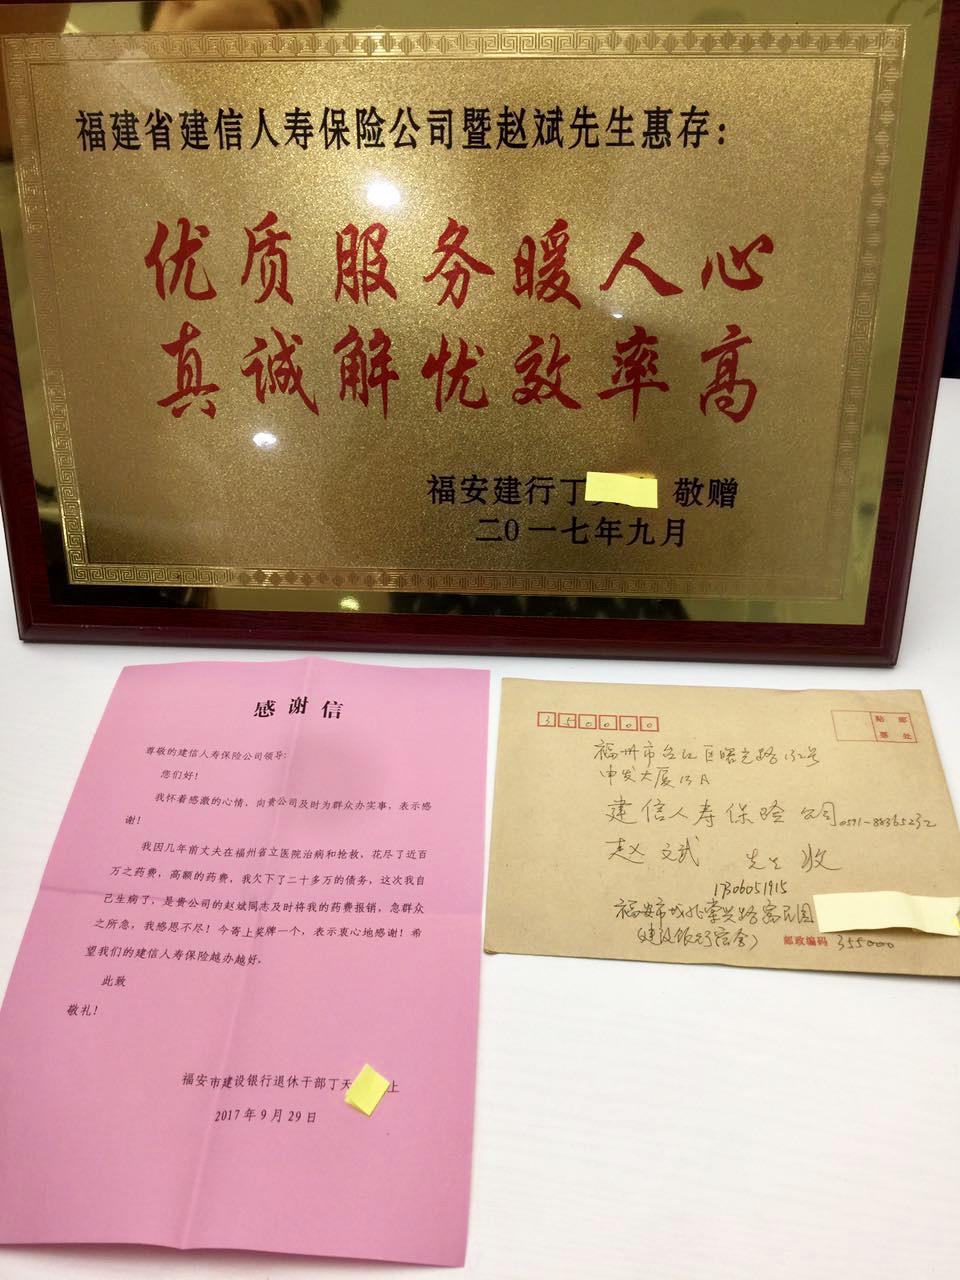 福建省建信人寿保险公司暨赵斌先生惠存：
优质服务暖人心
真诚解忧效率高
福安建行丁 敬赠
二〇一七年九月
感谢信
尊敬的建信人寿保险公司领导：
您们好！
我怀着感激的心情，向贵公司及时为群众办实事，表示感
谢！
我因几年前丈夫在福州省立医院治病和抢救，花尽了近百
万之药费，高额的药费，我欠下了二十多万的债务，这次我自
己生病了，是贵公司的赵斌同志及时将我的药费报销，急群众
之所急，我感恩不尽！今寄上奖牌一个，表示衷心地感谢！希
望我们的建信人寿保险越办越好。
此致
敬礼！
福安市建设银行退休干部丁天 上
2017年9月29日
350000
贴邮
票处
福州市台江区曙光路132号
中发大厦13A
建信人寿保险公司0591-88365232
赵文武 先生 收
17306051915
福安市城北崇兴路富民园
(建设银行宿舍) 邮政编码 355000